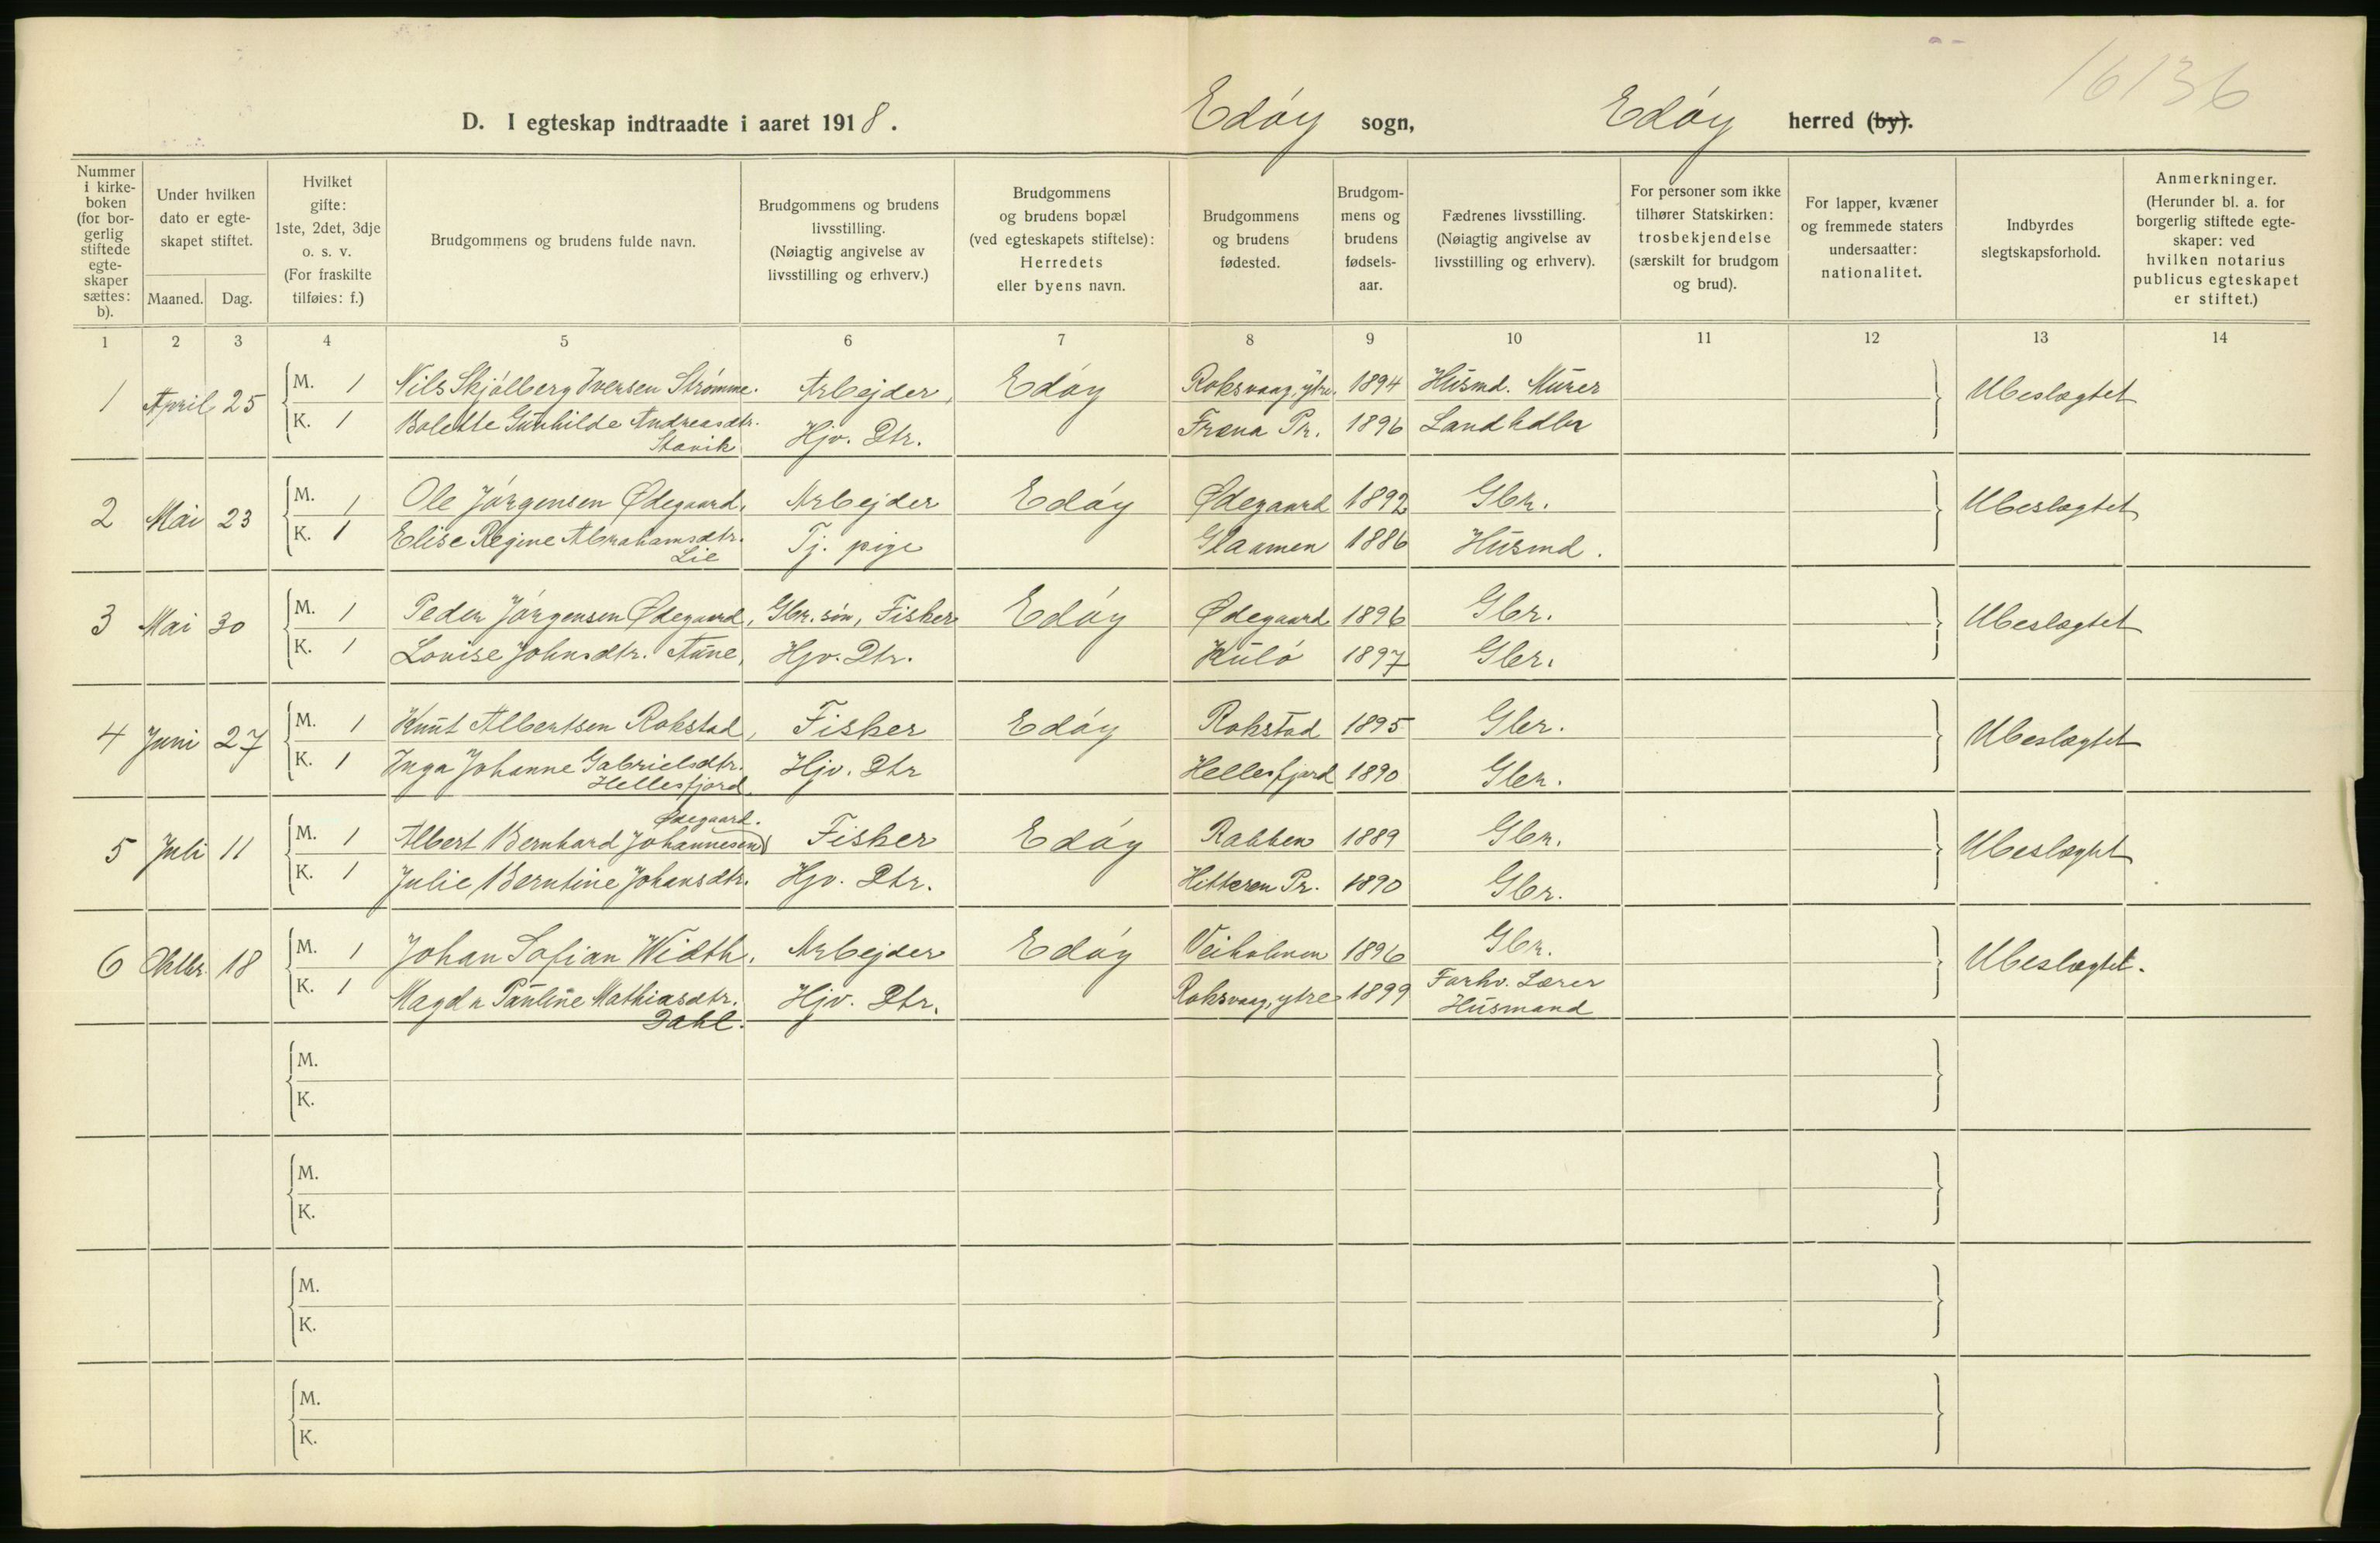 16136
D. I egteskap indtraadte i aaret 1918. Edøy sogn, Edøy herred (by).
Nummer i kirke-boken (for bor-gerlig stiftede egte-skaper sættes: b).
Under hvilken dato er egte-skapet stiftet.
Maaned. Dag.
Hvilket gifte: 1ste, 2det, 3dje o. s. v. (For fraskilte tilføies: f.)
Brudgommens og brudens fulde navn.
Brudgommens og brudens livsstilling. (Nøiagtig angivelse av livsstilling og erhverv.)
Brudgommens og brudens bopæl (ved egteskapets stiftelse): Herredets eller byens navn.
Brudgommens og brudens fødested.
Brudgom-mens og brudens fødsels-aar.
Fædrenes livsstilling. (Nøiagtig angivelse av livsstilling og erhverv).
For personer som ikke tilhører Statskirken: trosbekjendelse (særskilt for brudgom og brud).
For lapper, kvæner og fremmede staters undersaatter: nationalitet.
Indbyrdes slegtskapsforhold.
Anmerkninger. (Herunder bl. a. for borgerlig stiftede egte-skaper: ved hvilken notarius publicus egteskapet er stiftet.)
1 2 3 4 5 6 7 8 9 10 11 12 13 14
1 April 25 M. 1 Nils Skjølberg Iversen Strømme. Arbejder, Edøy Roksvaag, ytre. 1894 Husmd. Murer Ubeslægtet
K. 1 Bolette Gunhilde Andreasdtr. Stavik Hjv. Dtr. Fræna Pr. 1896 Landhdlr
2 Mai 23 M. 1 Ole Jørgensen Ødegaard, Arbejder Edøy Ødegaard 1892 Gbr. Ubeslægtet
K. 1 Elise Regine Abrahamsdtr. Lie Tj. pige Glaamen 1886 Husmd.
3 Mai 30 M. 1 Peder Jørgensen Ødegaard, Gbr. søn, Fisker Edøy Ødegaard 1896 Gbr. Ubeslægtet
K. 1 Lovise Johnsdtr. Aune, Hjv. Dtr. Kulø 1897 Gbr.
4 Juni 27 M. 1 Knut Albertsen Rokstad, Fisker Edøy Rokstad 1895 Gbr. Ubeslægtet
K. 1 Inga Johanne Gabrielsdtr. Hellesfjord. Hjv. Dtr Hellesfjord 1890 Gbr.
5 Juli 11 M. 1 Albert Bernhard Johannesen Ødegaard. Fisker Edøy Rabben 1889 Gbr. Ubeslægtet
K. 1 Julie Berntine Johansdtr. Hjv. Dtr. Hitteren Pr. 1890 Gbr.
6 Oktbr. 18 M. 1 Johan Sofian Width. Arbejder Edøy Veiholmen 1896 Gbr. Ubeslægtet.
K. 1 Magda Pauline Mathiasdtr. Dahl. Hjv. Dtr. Roksvaag, ytre 1899 Forhv. Lærer Husmand
M.
K.
M.
K.
M.
K.
M.
K.